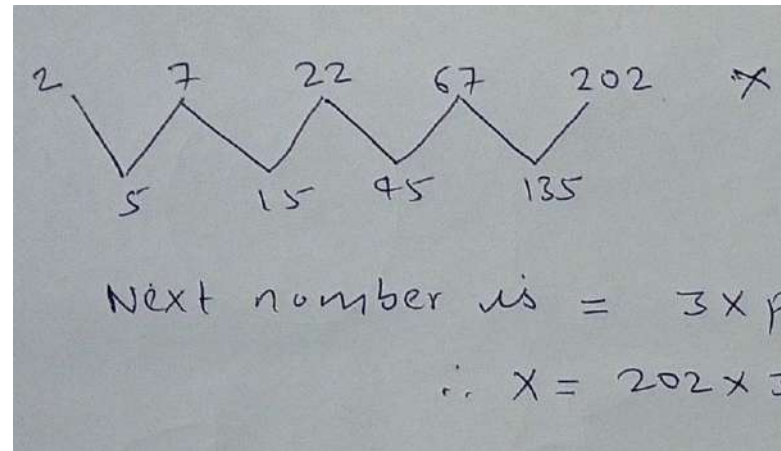 2 7 22 67 202 x
5 15 45 135
Next number is = 3 x
∴ x = 202 x